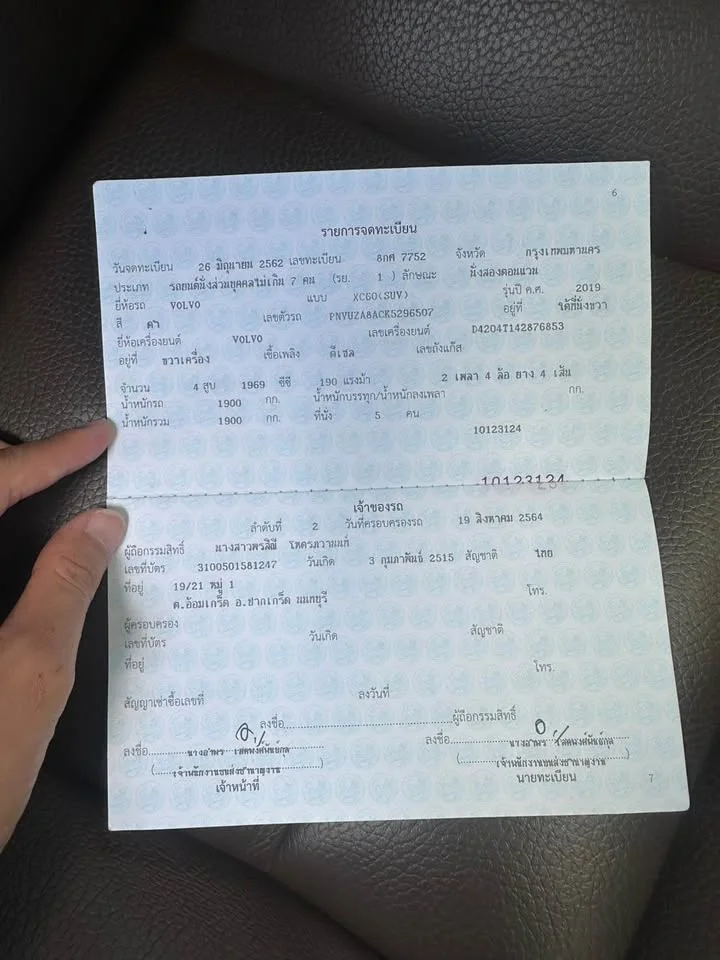 6
รายการจดทะเบียน
วันจดทะเบียน 26 มิถุนายน 2562 เลขทะเบียน 8กศ 7752 จังหวัด กรุงเทพมหานคร
ประเภท รถยนต์นั่งส่วนบุคคลไม่เกิน 7 คน (รย. 1 ) ลักษณะ นั่งสองตอนแวน
ยี่ห้อรถ VOLVO แบบ XC60(SUV) รุ่นปี ค.ศ. 2019
สี ดำ เลขตัวรถ PNVUZA8ACK5296507 อยู่ที่ ใต้ที่นั่งขวา
ยี่ห้อเครื่องยนต์ VOLVO เลขเครื่องยนต์ D4204T142876853
อยู่ที่ ขวาเครื่อง เชื้อเพลิง ดีเซล เลขถังแก๊ส
จำนวน 4 สูบ 1969 ซีซี 190 แรงม้า 2 เพลา 4 ล้อ ยาง 4 เส้น
น้ำหนักรถ 1900 กก. น้ำหนักบรรทุก/น้ำหนักลงเพลา กก.
น้ำหนักรวม 1900 กก. ที่นั่ง 5 คน
10123124
10123124
เจ้าของรถ
ลำดับที่ 2 วันที่ครอบครองรถ 19 สิงหาคม 2564
ผู้ถือกรรมสิทธิ์ นางสาวพรสิณี
เลขที่บัตร 3100501581247 วันเกิด 3 กุมภาพันธ์ 2515 สัญชาติ ไทย
ที่อยู่ 19/21 หมู่ 1
ต.อ้อมเกร็ด อ.ปากเกร็ด นนทบุรี โทร.
ผู้ครอบครอง
เลขที่บัตร วันเกิด สัญชาติ
ที่อยู่
โทร.
สัญญาเช่าซื้อเลขที่ ลงวันที่
ลงชื่อ ผู้ถือกรรมสิทธิ์
ลงชื่อ นางอำพร ลงชื่อ นางอำพร
(เจ้าพนักงานขนส่งชำนาญงาน) (เจ้าพนักงานขนส่งชำนาญงาน)
เจ้าหน้าที่ นายทะเบียน
7